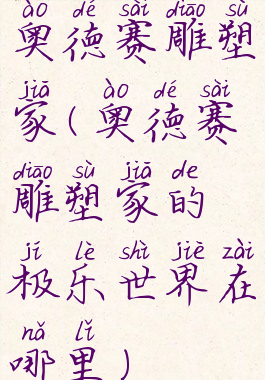 ào dé sài diāo sù
奥德赛雕塑
jiā ào dé sài
家(奥德赛
diāo sù jiā de
雕塑家的
jí lè shì jiè zài
极乐世界在
nǎ lǐ
哪里)